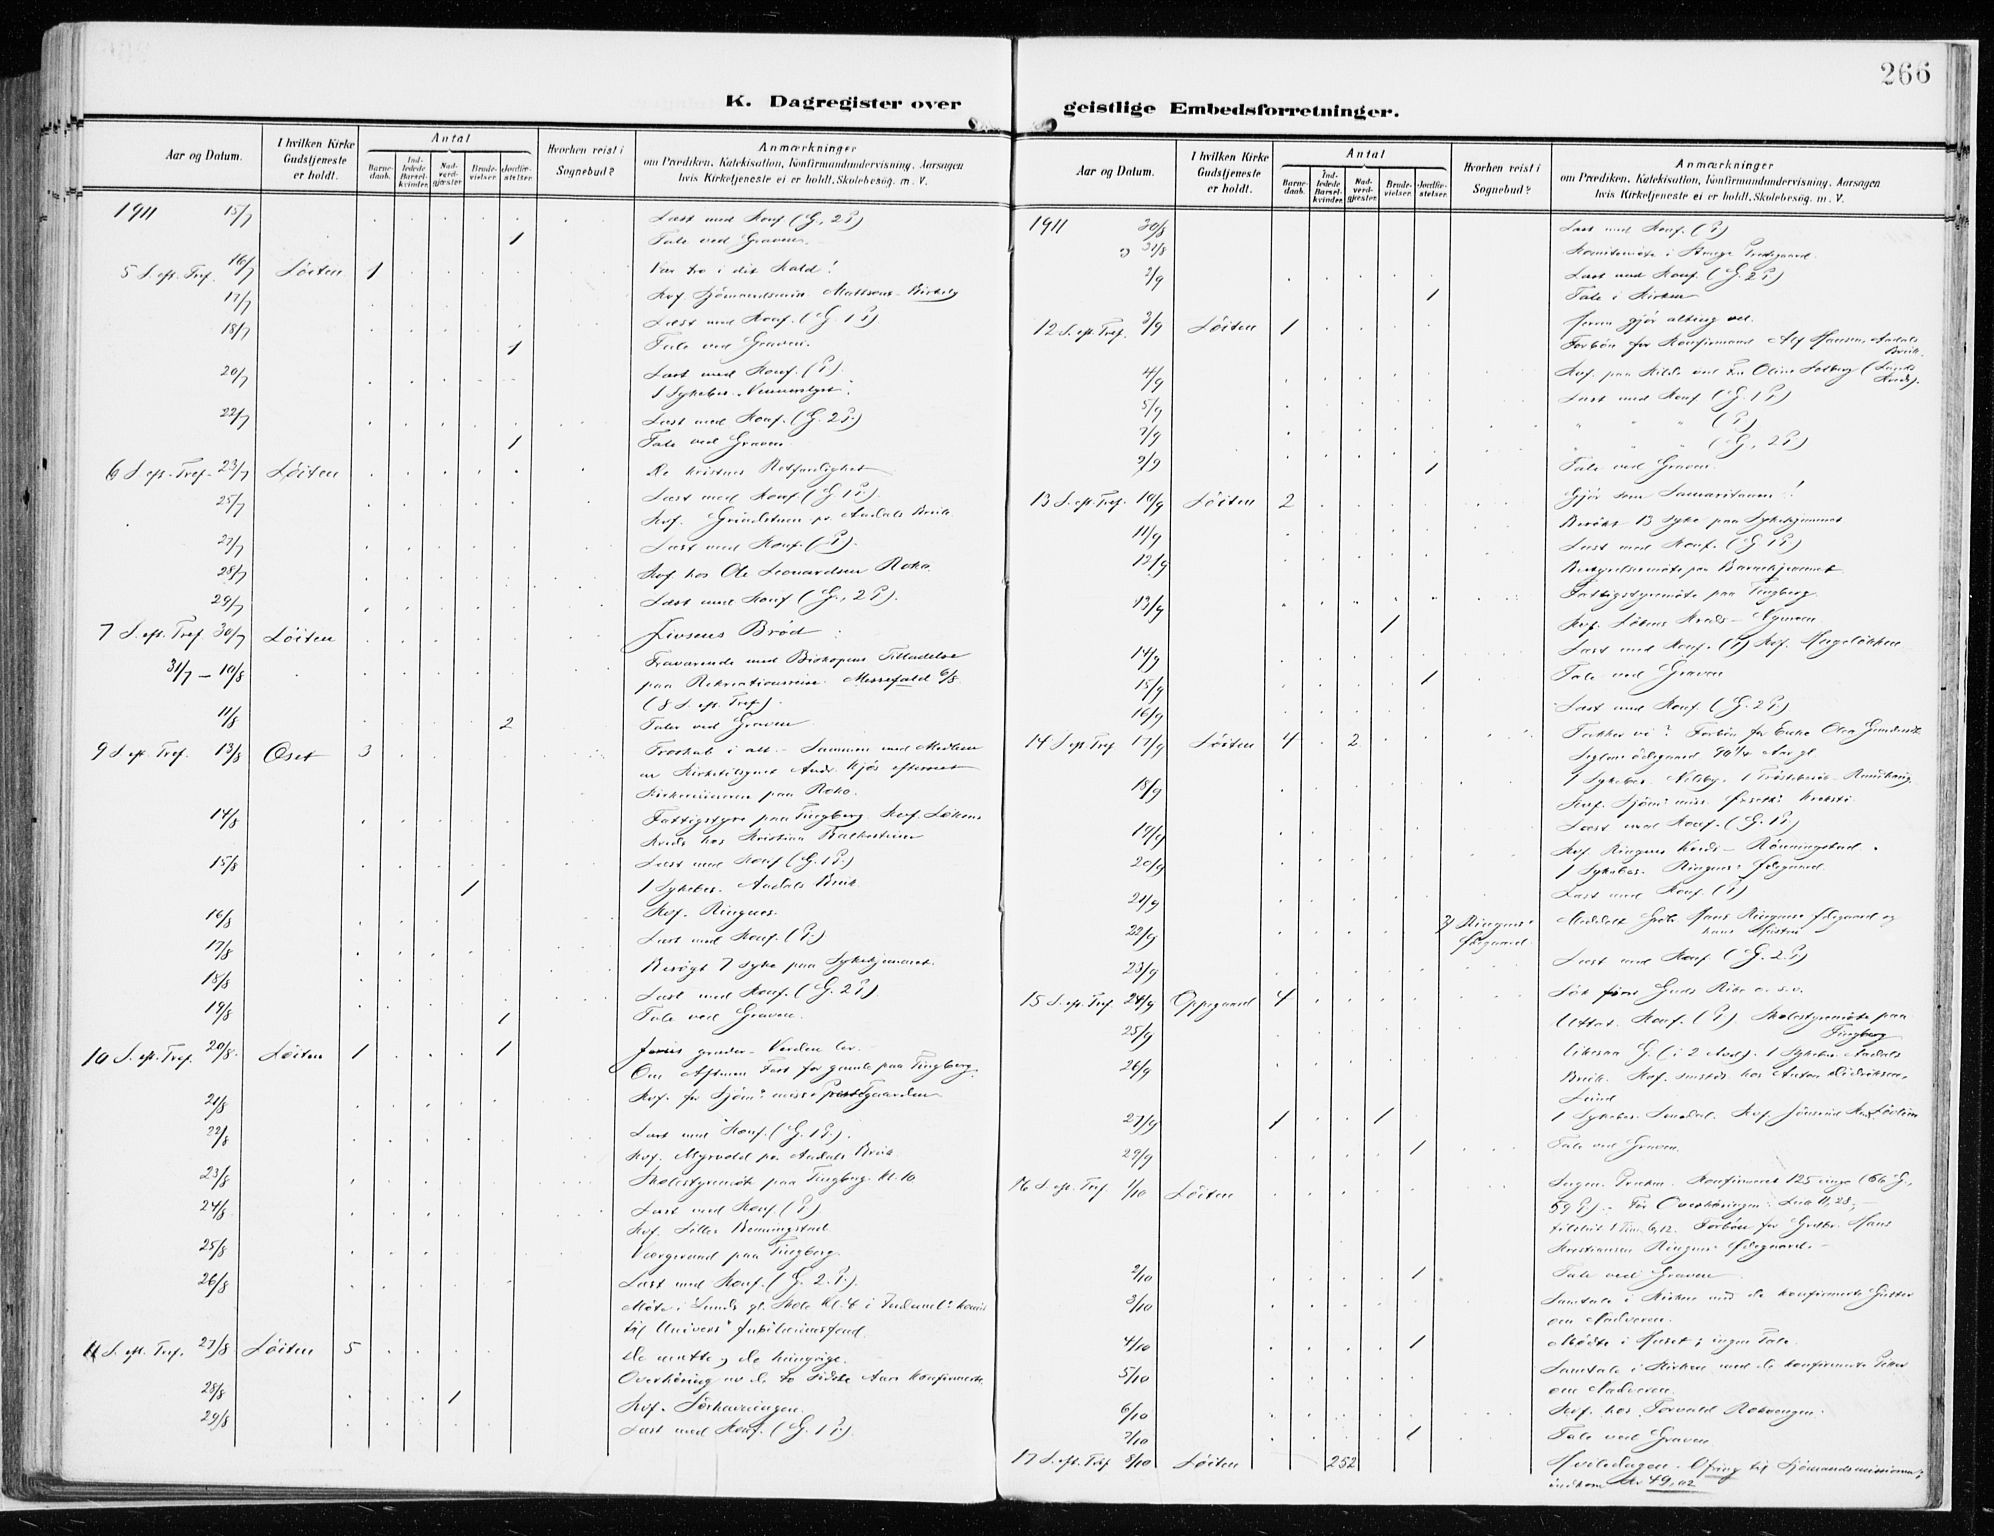 266
K. Dagregister over geistlige Embedsforretninger.
Aar og Datum.
I hvilken Kirke Gudstjeneste er holdt.
Antal
Barnedaab.
Indledede Barselkvinder.
Nadverdgjæster.
Brudevielser.
Jordfæstelser.
Hvorhen reist i Sognebud?
Anmærkninger
om Prædiken, Katekisation, Konfirmandundervisning, Aarsagen
hvis Kirketjeneste ei er holdt, Skolebesøg, m. V.
1911 15/7 Læst med Konf. (G, 2 P)
1 Tale ved Graven.
5 S. eft. Tref. 16/7 Löiten 1 Vær tro i dit Kald!
17/7 Kvf. Sjömandsmis.
18/7 Læst med Konf. (G. 1 P)
1 Tale ved Graven.
20/7 Læst med Konf. (P).
1 Sykebes.
22/7 Læst med Konf. (G. 2 P.)
1 Tale ved Graven
6 S. eft. Tref. 23/7 Löiten De kristnes Retfærdighet
25/7 Læst med Konf. (G 1 P.)
Kvf. Grindstuen pr. Aadals Bruk.
27/7 Læst med Konf. (P).
28/7 Kvf. hos Ole Leonardsen Roko
29/7 Læst med Konf (G., 2 P).
7 S. eft. Tref. 30/7 Löiten Livsens Bröd
31/7 – 10/8 Fraværende med Biskopens Tilladelse
paa Rekreationsreise. Messefald 6/8
(8 S. eft. Tref).
11/8 2 Taler ved Graven
9 S. eft. Tref. 13/8 Oset 3 Troskab i alt. – Sammen med Medlem
av Kirketilsynet Andr. Kjös efterset
Kirkemuren paa Roko.
14/8 Fattigstyre paa Tingberg. Kvf. Lökens
Kreds hos Kristian
15/8 Læst med Konf (G. 1 P)
1 1 Sykebes. Aadals Bruk.
16/8 Kvf. Ringnes.
17/8 Læst med Konf. (P.)
18/8 Besögt 7 syke paa Sykehjemmet.
19/8 Læst med Konf. (G. 2 P)
1 Tale ved Graven.
10 S. eft. Tref. 20/8 Löiten 1 1 Jesus græder – Verden ler.
Om Aftenen Fest for gamle paa Tingberg.
21/8 Kvf. for Sjöm. misse i Prestegaarden
22/8 Læst med Konf. (G. 1 P.).
Kvf. Myrvold pr. Aadals Bruk.
23/8 Skolestyremöte paa Tingberg. Kl. 10
24/8 Læst med Konf (P)
Kvf.
25/8 Værgeraad paa Tingberg.
26/8 Læst med Konf. (G. 2. P.).
Möte i Lunds gl. Skole Kl. 4 i
til Univers. Jubilæumsfond.
11 S. eft. Tref. 27/8 Löiten 5 De mætte og de hungrige.
Overhöring av de to sidste Aars Konfirmerte.
28/8 1 Kvf.
29/8 Læst med Konf. (G. 1 P).
Aar og Datum.
I hvilken Kirke Gudstjeneste er holdt.
Antal
Barnedaab.
Indledede Barselkvinder.
Nadverdgjæster.
Brudevielser.
Jordfæstelser.
Hvorhen reist i Sognebud?
Anmærkninger
om Prædiken, Katekisation, Konfirmandundervisning, Aarsagen
hvis Kirketjeneste ei er holdt, Skolebesøg, m. V.
1911 30/8 Læst med Konf. (P)
31/8 Komitemöte i Stange Prestgaard.
2/9 Læst med Konf. (G. 2 P)
1 Tale i Kirken
12 S. eft. Tref. 3/9 Löiten 1 Herren gjör alting vel.
Forbön for Konfirmand Alf Hansen, Aadals Bruk.
4/9 Kvf. paa Kilde ved Fru Oline Solberg (Lunds Kreds).
5/9 Læst med Konf (G. 1 P)
7/9 " " " (P)
9/9 " " " (G, 2 P)
1 Tale ved Graven.
13 S. eft. Tref. 10/9 Löiten 2 Gjör som Samaritanen!
11/9 Besökt 13 Syke paa Sykehjemmet
12/9 Læst med Konf. (G 1 P)
Bestyrelsesmöte paa Barnehjemmet.
13/9 Fattigstyremöte paa Tingberg.
1 Kvf. Lökens Kreds –
14/9 Læst med Konf. (P) Kvf.
15/9 1 Tale ved Graven
16/9 Læst med Konf. (G 2 P)
14 S. eft. Tref. 17/9 Löiten 4 2 Takker vi? Forbön for Enke Olea
90 1/4 Aar gl.
18/9 1 Sykebes.
Kvf. Sjöm. miss.
19/9 Læst med Konf. (G. 1 P)
20/9 Kvf. Ringnes Kreds – Rönningstad.
1 Sykebes. Ringnes Ödegaard.
21/9 Læst med Konf. (P)
22/9 Ringnes Ödegaard. Meddelt Grbr. Hans Ringnes Ödegaard og hans Hustru
23/9 Læst med Konf (G. 2 P)
15 S. eft. Tref. 24/9 Oppegaard 4 Sök först Guds Rike o. s. v.
25/9 Uttat. Konf. (P) Skolestyremöte paa Tingberg
26/9 Likesaa G. (i 2 Avd). 1 Sykebes. Aadals
Bruk. Kvf. smsteds hos Anton Didriksen,
Lund
27/9 1 1 1 Sykebes. Kvf.
29/9 1 Tale ved Graven.
16 S. eft. Tref 1/10 Löiten Konfirmeret 125 unge (66 G.,
59 P). – Före Overhöringen: Luk 11,28, –
tilslut 1 Tim. 6,12. Forbön for Grdbr. Hans
Kristiansen Ringnes Ödegaard. –
2/10 1 Tale ved Graven
3/10 Samtale i Kirken med de konfirmerte Gutter
om Nadveren.
4/10 1 Mödte i Huset; ingen Tale.
5/10 Samtale i Kirken med de konfirmerte Piker
om Nadveren.
6/10 Kvf. hos Torvald
7/10 1 Tale ved Graven
17 S. eft. Tref 8/10 Löiten 252 Hviledagen. Ofring til Sjömandsmissionen
indkom Kr 49,02